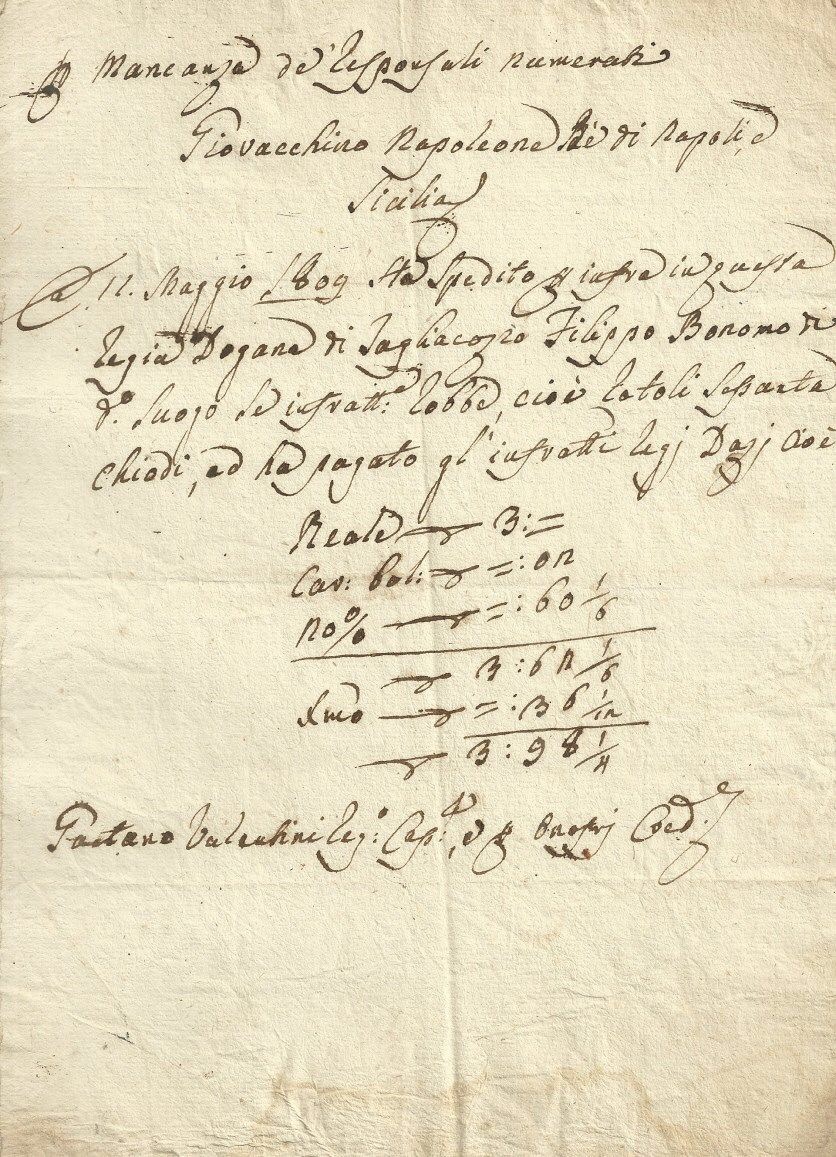 Mancanza de' Responsali numerati
Giovacchino Napoleone Rè di Napoli, e
Sicilia
A 12. Maggio 1809 Ha Spedito infra in questa
Regia Dogana di Tagliacozzo Filippo Bonomo di
d.o luogo le infratt.e robbe, cioè rotoli Sessanta
Chiodi, ed ha pagato gl'infratti Regj Dazj cioè
Reale 3:=
Cav: Bal: =:02
20% =:60 1/6
3:62 1/6
=:36 1/12
3:98 1/4
Gaetano Valentini Reg:o Cap:, e Onofrj Cred.